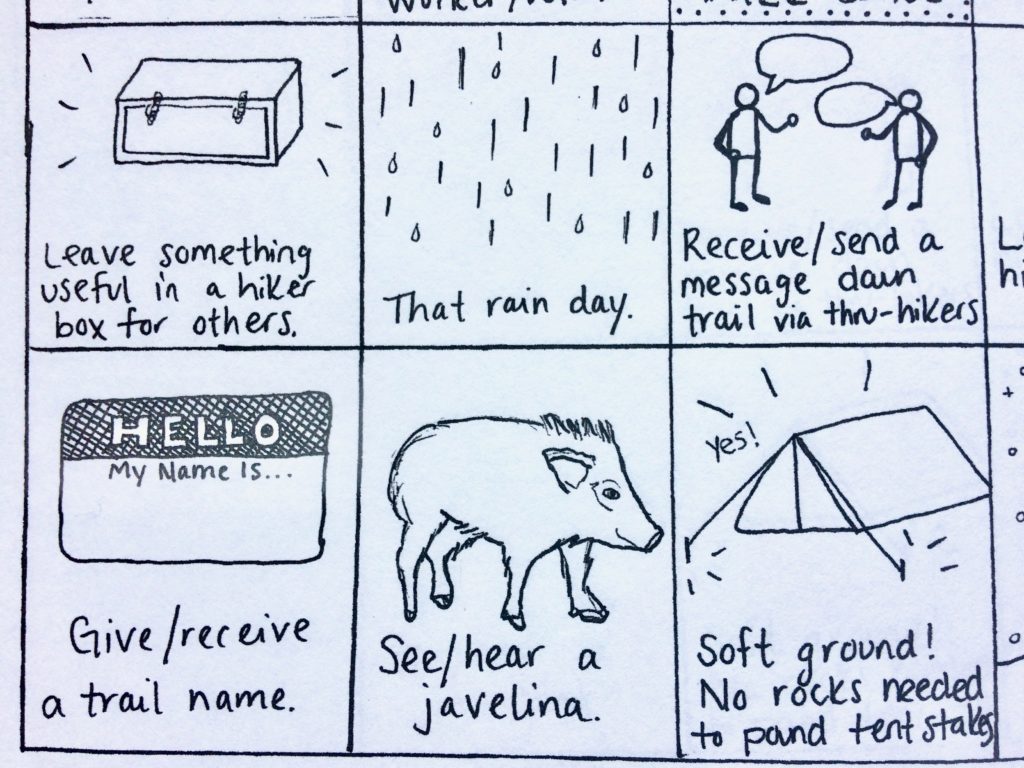 Leave something
useful in a hiker
box for others.
That rain day.
Receive/send a
message down
trail via thru-hikers
HELLO
My Name Is...
Give/receive
a trail name.
See/hear a
javelina.
yes!
Soft ground!
No rocks needed
to pound tent stakes